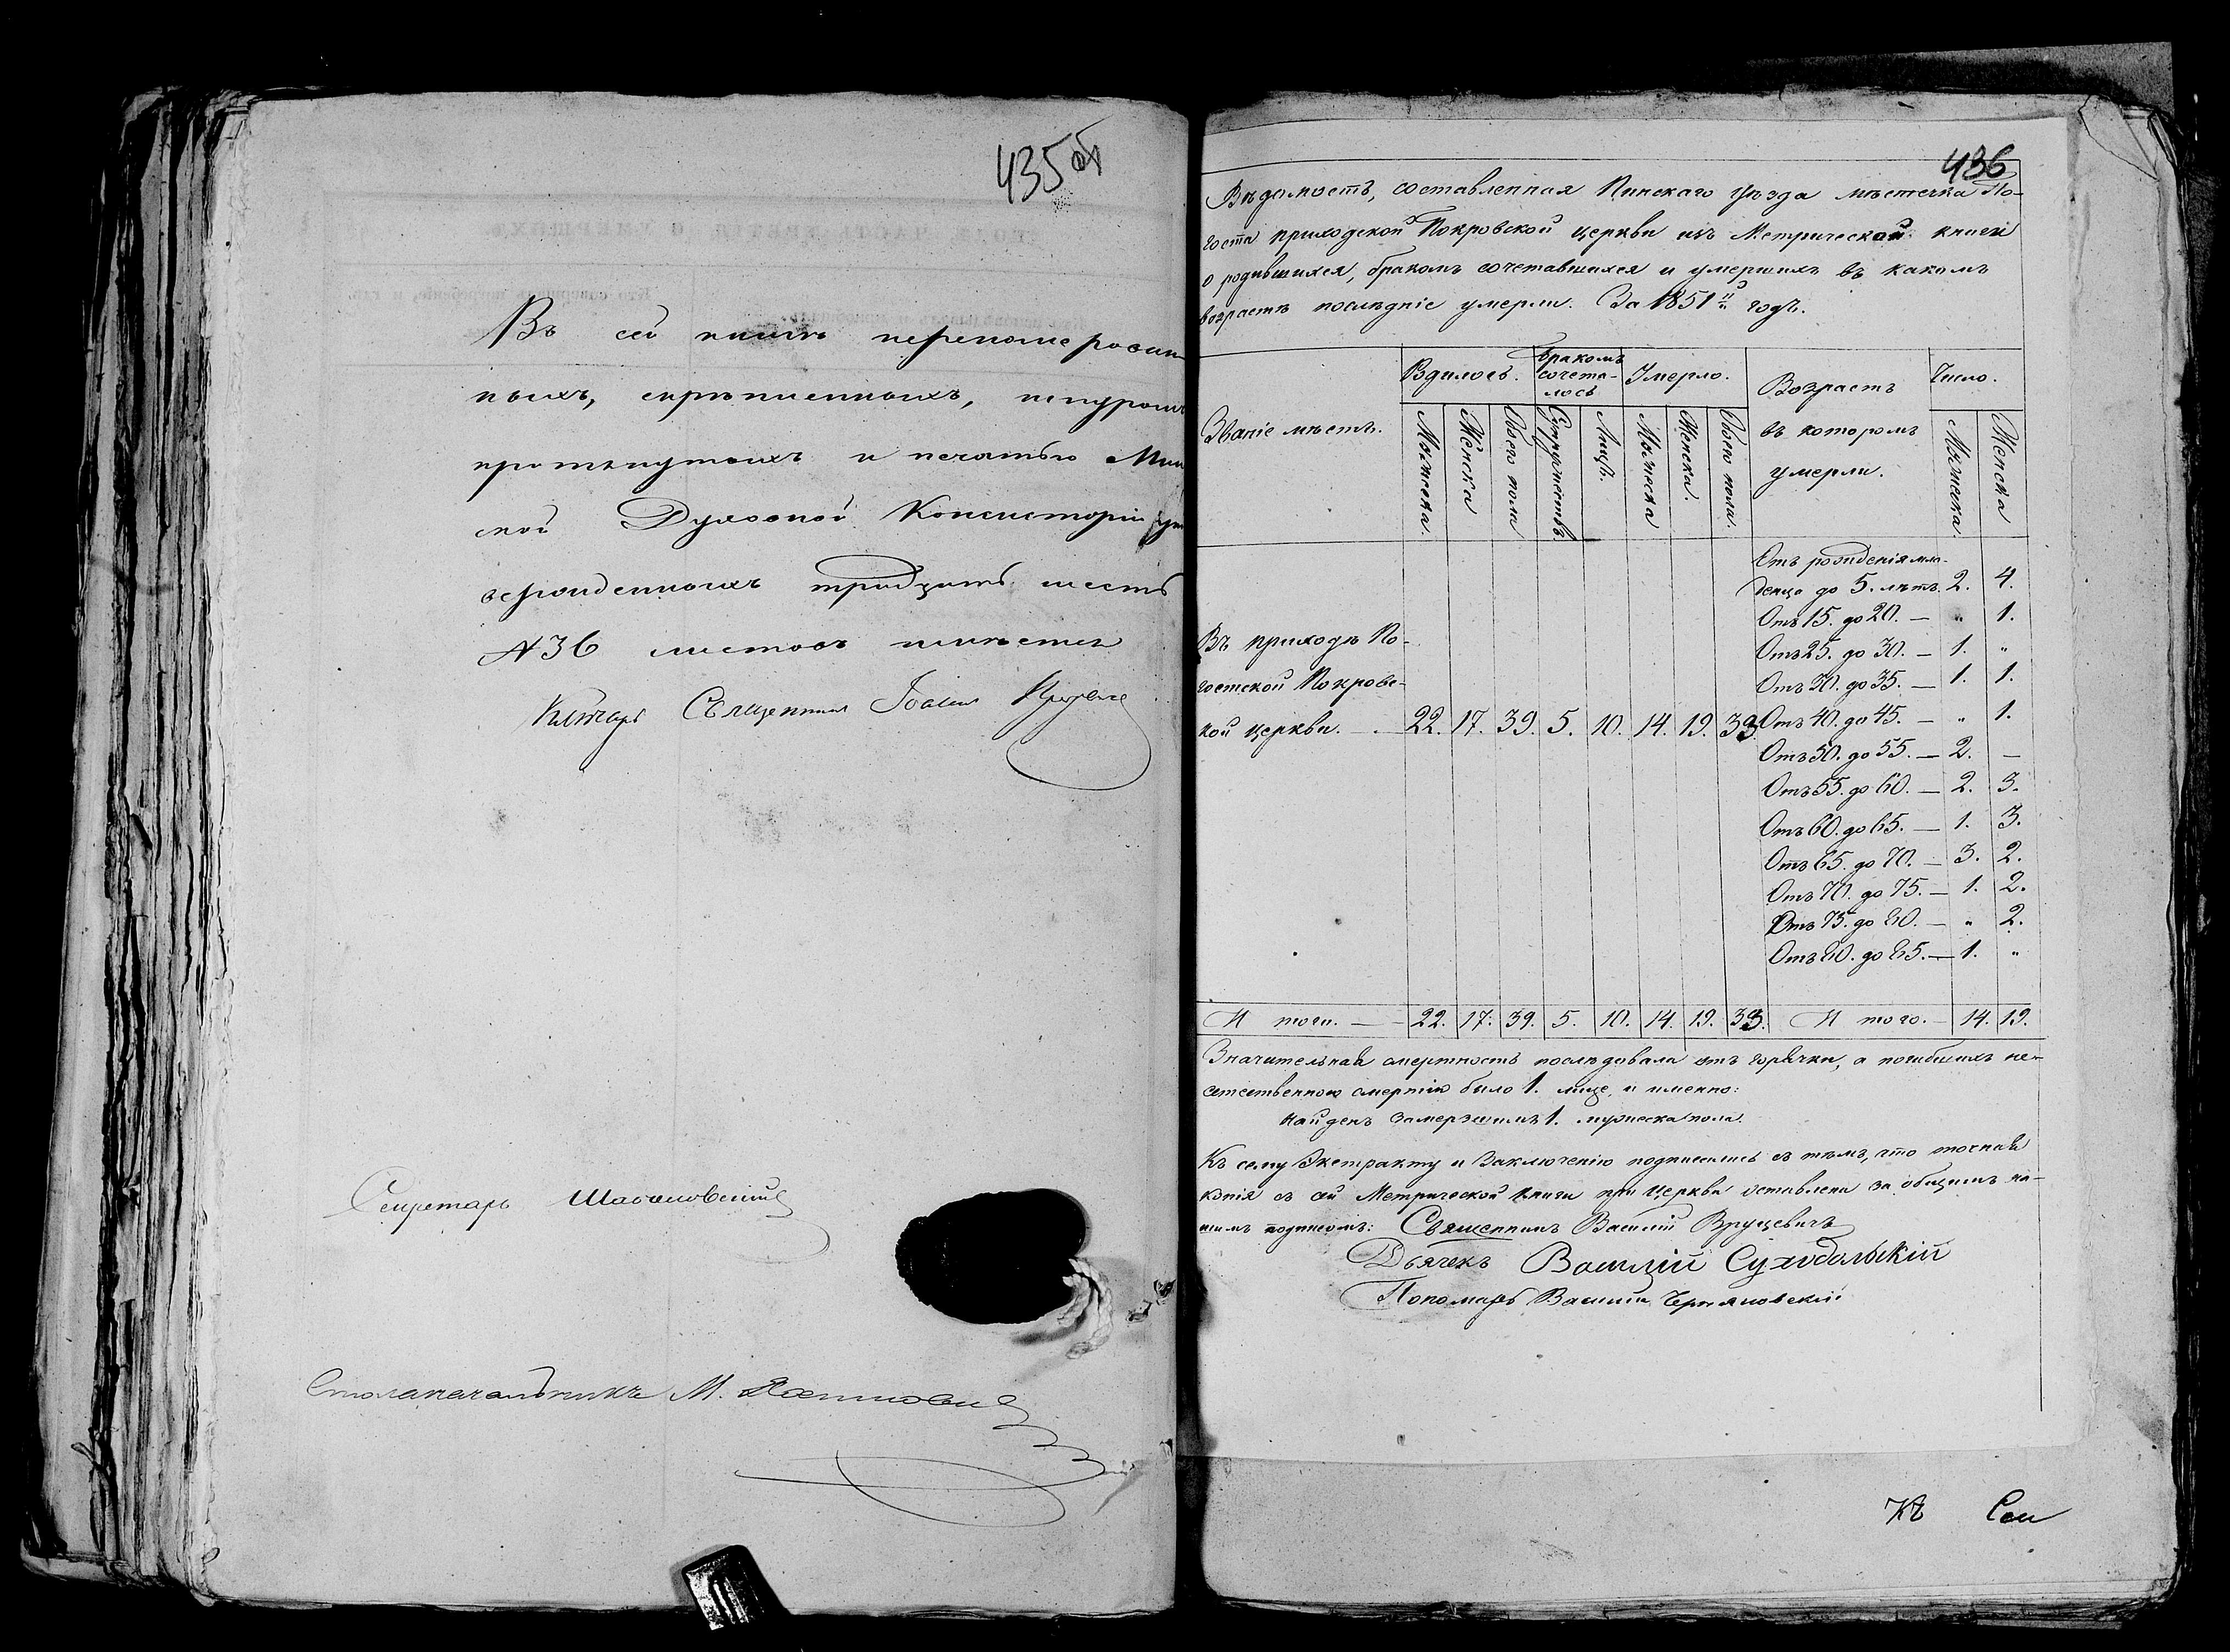 435 об
Въ сей книгѣ перенумерован
ныхъ, скрѣпленныхъ, шнуромъ
протянутыхъ и печатью Мин
ской Духовной Консисторіи ут
вержденныхъ тридцать шесть
№ 36 листовъ имѣется
Ключарь Священникъ Іоаннъ
Секретарь
Столоначальникъ М.
436
Вѣдомость, составленная Пинскаго уѣзда мѣстечка По-
госта приходской Покровской церкви изъ Метрической книги
о родившихся, бракомъ сочетавшихся и умершихъ въ какомъ
возрастѣ послѣдніе умерли. За 1851й годъ.
Званіе мѣстъ. Рдилось. Бракомъ сочета-лось Умерло. Возрастъ въ которомъ умерли. Число.
Мужеска. Женска Обоего пола Супружествъ Лицъ. Мужеска Женска. Обоего пола. Мужеска. Женска
Отъ рожденія мла-
денца до 5. лѣтъ. 2. 4.
Отъ 15. до 20. — „ 1.
Отъ 25. до 30. — 1. „
Отъ 30. до 35. — 1. 1.
Въ приходѣ По-
гостской Покровс-
кой церкви. — 22. 17. 39. 5. 10. 14. 19. 33. Отъ 40. до 45. — „ 1.
Отъ 50. до 55. — 2. —
Отъ 55. до 60. — 2. 3.
Отъ 60. до 65. — 1. 3.
Отъ 65. до 70. — 3. 2.
Отъ 70. до 75. — 1. 2.
Отъ 75. до 80. — „ 2.
Отъ 80. до 85. — 1. „
И того. — 22. 17. 39. 5. 10. 14. 19. 33. И того. — 14. 19.
Значительная смертность послѣдовала отъ горячки, а погибшихъ не-
естественною смертію было 1. лице, и именно:
Найденъ замерзшимъ 1. мужеска пола.
Къ сему Экстракту и Заключенію подписались съ тѣмъ, что точная
копія съ сей Метрической книги при Церкви оставлена за общимъ на-
шимъ подписомъ: Священникъ Василій Вруцевичъ
Дьячекъ Василій Сухобольскій
Пономарь Василій Черняковскій